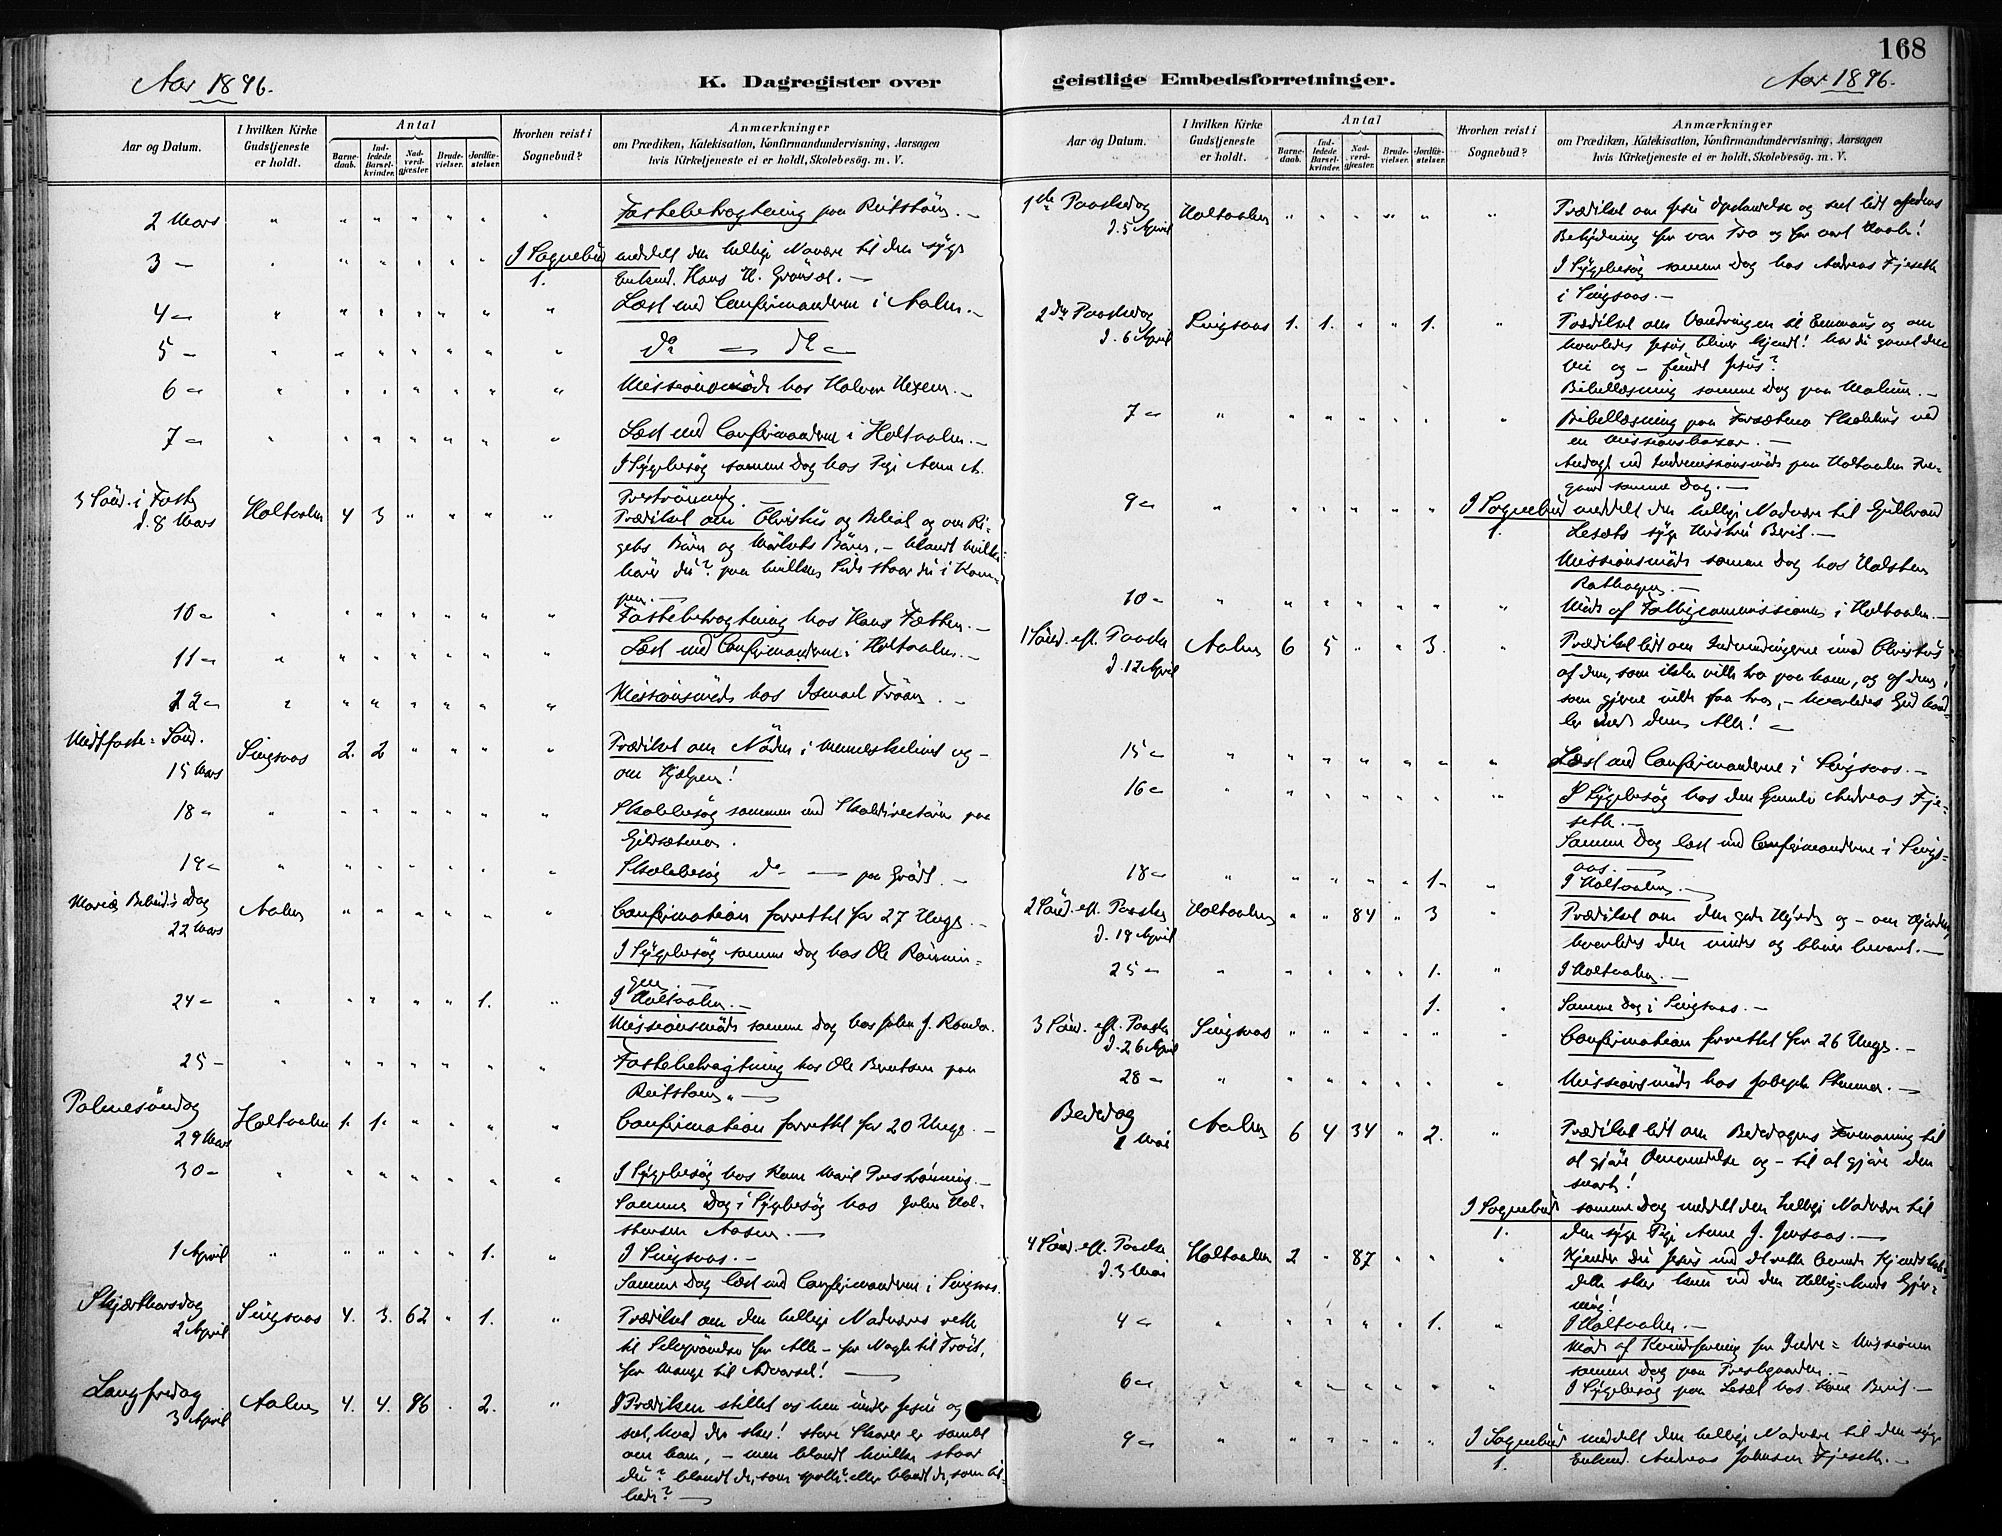 168
Aar 1896.
K. Dagregister over
geistlige Embedsforretninger.
Aar 1896.
Aar og Datum.
I hvilken Kirke Gudstjeneste er holdt.
Antal
Barnedaab.
Indledede Barselkvinder.
Nadverdgjæster.
Brudevielser.
Jordfæstelser.
Hvorhen reist i Sognebud?
Anmærkninger
om Prædiken, Katekisation, Konfirmandundervisning, Aarsagen
hvis Kirketjeneste ei er holdt, Skolebesög. m. V.
2 Mars " " " " " " " Fastebetragtning paa
3 - " " " " " " I Sognebud meddelt den hellige Nadvere til den syge
1. Enkemd. Hans H. Grönsæt. -
4 - " " " " " " " Læst med Confirmanderne i Aalen. -
5 - " " " " " " " do - do -
6 - " " " " " " " Missionsmöde hos Halvor Hexem. -
7 - " " " " " " " Læst med Confirmanderne i Holtaalen. -
I Sygebesög samme Dag hos Pige Anne A.
3 Sönd. i Faste
d. 8 Mars Holtaalen 4 3 " " " " Prædiket om Christus og Belial og om Ri-
gets Börn og Mörkets Börn, - blandt hvilke
hörer du? paa hvilken Side staar du i Kam-
pen. -
10 - " " " " " " " Fastebetragtning hos Hans Fætten. -
11 - " " " " " " " Læst med Confirmanderne i Holtaalen. -
- " " " " " " " Missionsmöde hos Ismael Tröan. -
Midtfaste-Sönd.
15 Mars Singsaas 2. 2 " " " " Prædiket om Nöden i Menneskelivet og -
om Hjælpen!
18 - " " " " " " " Skolebesög sammen med Skoledirectören paa
19 - " " " " " " " Skolebesög do - paa Grödt. -
Mariæ Bebud.s Dag
22 Mars Aalen " " " " " " Confirmation forrettet for 27 Unge. -
I Sygebesög samme Dag hos Ole
24 - " " " " " 1. " I Holtaalen. -
Missionsmöde samme Dag hos John J.
25 - " " " " " " " Fastebetragtning hos Ole Berntsen paa
Palmesöndag
29 Mars Holtaalen 1. 1. " " " " Confirmation forrettet for 20 Unge. -
30 - " " " " " " " I Sygebesög hos Kone Marit Preströnning. -
Samme Dag i Sygebesög hos John Hal-
stensen Aasen. -
1 April " " " " " 1. " I Singsaas. -
Samme Dag læst med Confirmanderne i Singsaas.
Skjærthorsdag
2 April Singsaas 4. 3. 62 " 1. " Prædiket om den hellige Nadveres rette
til Selvprövelse for Alle - for Nogle til Tröst,
for Mange til Advarsel! -
Langfredag
3 April Aalen 4. 4. 96 . 2. " I Prædiken stillet os hen under Jesu
se, hvad der sker! store Skarer er samlet
om ham, - men blandt hvilke staar
du? blandt de, som spotte? eller blandt de, som
? -
Aar og Datum.
I hvilken Kirke Gudstjeneste er holdt.
Antal
Barnedaab.
Indledede Barselkvinder.
Nadverdgjæster.
Brudevielser.
Jordfæstelser.
Hvorhen reist i Sognebud?
Anmærkninger
om Prædiken, Katekisation, Konfirmandundervisning, Aarsagen
hvis Kirketjeneste ei er holdt, Skolebesög. m. V.
1ste Paaskedag
d. 5 April Holtaalen " " " " " " Prædiket om Jesu Opstandelse og set lidt af dens
Betydning for vor Tro og for vort Haab!
I Sygebesög samme Dag hos Andreas Fjeseth
i Singsaas. -
2den Paaskedag
d. 6 April Singsaas 1. 1. " " 1. " Prædiket om Vandringen til Emmaus og om
hvorledes Jesus bliver kjendt! har du gaaet den
Vei og - fundet Jesus?
Bibellæsning samme Dag paa
7 - " " " " " " " Bibellæsning paa Skolehus ved
en Missionsbazar. -
Andagt ved Indremissionsmöde paa Holtaalen Præ-
gaard samme Dag. -
9 - " " " " " " I Sognebud meddelt den hellige Nadvere til Gulbrand
1. Lesæts syge Hustru Berit. -
Missionsmöde samme Dag hos Halsten
10 - " " " " " " " Möde af Fattigcommissionen i Holtaalen. -
1 Sönd. eft. Paaske
d. 12 April Aalen 6 5 " " 3. " Prædiket lidt om Indvendingerne imod Christus
af dem, som ikke ville tro paa ham, og af dem,
som gjerne vilde faa tro, - hvorledes Gud hand-
ler med dem Alle! -
15 - " " " " " " " Læst med Confirmanderne i Singsaas. -
16 - " " " " " " " I Sygebesög hos den Gamle Andreas Fje-
seth. -
Samme Dag læst med Confirmanderne i Sings-
aas. -
18 - " " " " " 1. " I Holtaalen. -
2 Sönd. eft. Paaske
d. 19 April Holtaalen " " 84 " 3 " Prædiket om den gode Hyrde og - om Hjorden,
hvorledes den vindes og bliver bevaret. -
25 - " " " " " 1. " I Holtaalen. -
1. " Samme Dag i Singsaas. -
3 Sönd. eft. Paaske
d. 26 April Singsaas " " " " " " Confirmation forrettet for 26 Unge. -
28 - " " " " " " " Missionsmöde hos -
Bededag
1 Mai Aalen 6 4 34 " 2. " Prædiket lidt om Bededagens Formaning til
at gjöre Omvendelse og - til at gjöre den
snart!
I Sognebud samme Dag meddelt den hellige Nadvere til
1. den syge Pige Anne J. Jensaas. -
4 Sönd. eft. Paaske
d. 3 Mai Holtaalen 2 " 87 " " " Kjender du Jesus med det rette
dette sker kun ved den Hellig-Aands Gjer-
ning!
4 - " " " " " 1. " I Holtaalen. -
Möde af Kvindeforening for Indre-Missionen
samme Dag paa Prestgaarden. -
6 - " " " " " " " I Sygebesög paa Lesæt hos Kone Berit. -
9 - " " " " " " I Sognebud meddelt den hellige Nadvere til den syge
1. Enkemd. Andreas Johnsen Fjeseth. -